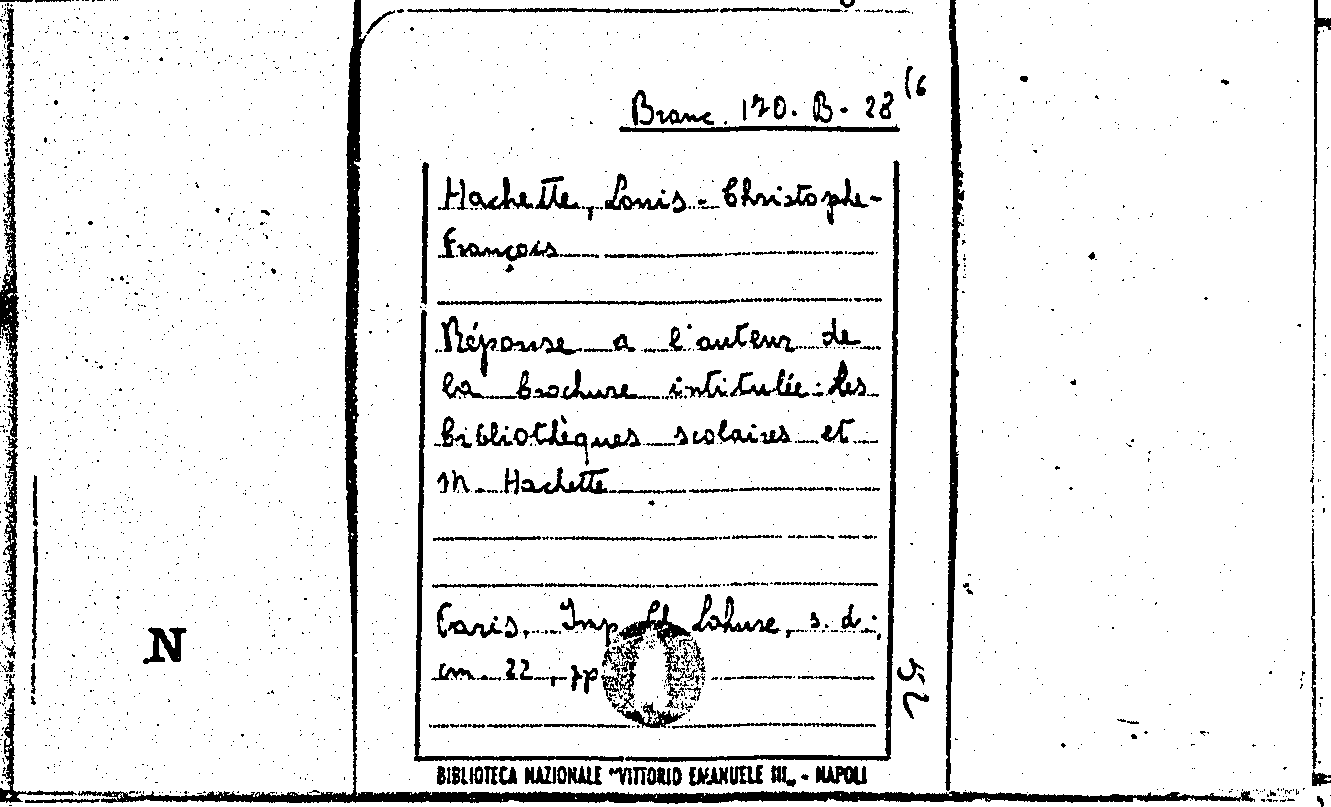 Branc. 170. B - 28 (6
Hachette, Louis - Christophe-
François
Réponse a l'auteur de
la brochure intitulée: Les
bibliothèques scolaires et
M. Hachette
Paris, Imp. Lahure, s. d.;
cm. 22, pp
52
N
BIBLIOTECA NAZIONALE "VITTORIO EMANUELE III" - NAPOLI